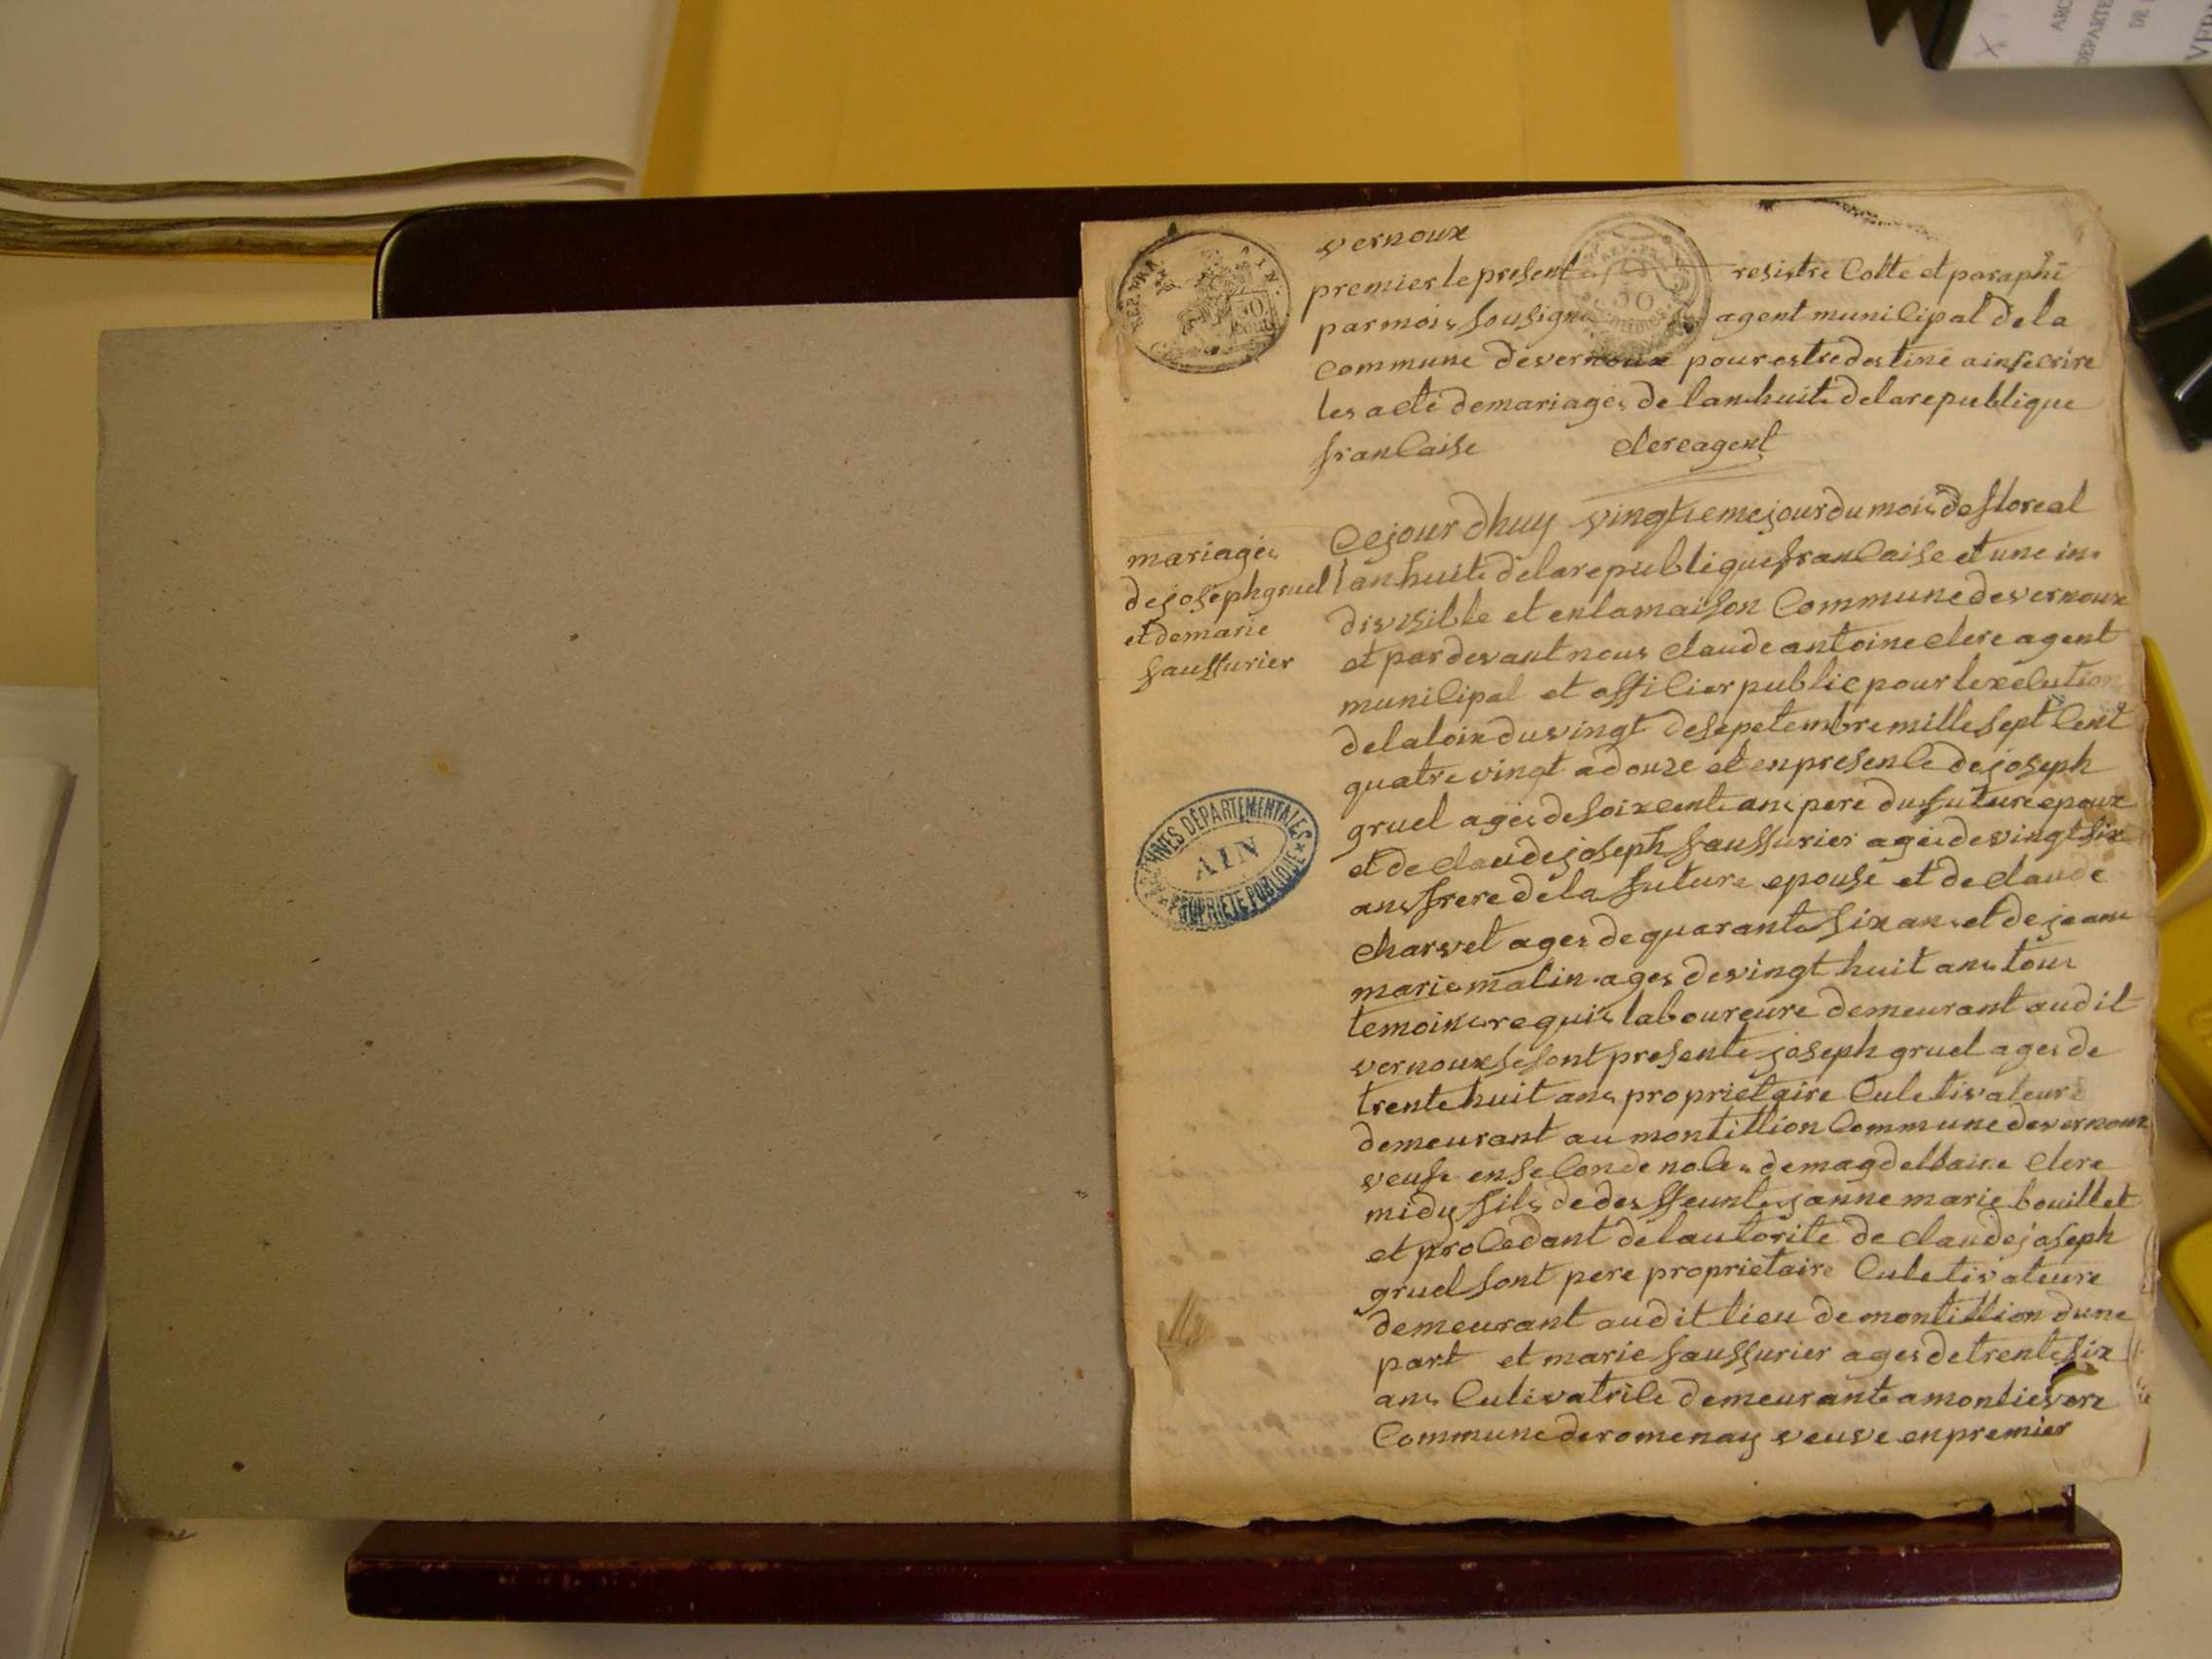 ARC
DEPARTE
DE
VER
X
REP. FRA. AIN.
50
cent
50
centimes
vernoux
premier le present resistre Cotte et paraphé
par mois sousigné agent municipal de la
Commune de vernoux pour estre destiné a inscrire
les acte de mariages de lan huite de la republique
francaise clere agent
mariages
de joseph gruel
et de marie
saussurier
Cejour dhuy vingtieme jour du mois de floreal
lan huite de la republique francaise et une in
divisible et en la maison Commune de vernoux
et par devant nous claude antoine clere agent
municipal et officier public pour lexecution
de la loix du vingt de sepetembre mille sept Cent
quatre vingt a douze et en presence de joseph
gruel ages de soixcente ans pere du future epoux
et de claude joseph saussurier ages de vingt six
ans frere de la future epouse et de claude
charvet ages de quarante six ans et de jeane
marie malin ages de vingt huit ans tous
temoins requis laboureure demeurant audit
vernoux se sont presente joseph gruel ages de
trente huit ans proprietaire Culetivateure
demeurant au montillion Commune de vernoux
veufe en seconde noces de magdellaine clere
midy fils de deffeunte janne marie bouillet
et procedant de lautorite de claude joseph
gruel sont pere proprietaire Culetivateure
demeurant audit lieu de montillion dune
part et marie saussurier ages de trente six
ans Culevatrice demeurante a montievere
Commune de romenay veuve en premier
ARCHIVES DÉPARTEMENTALES
AIN
PROPRIÉTÉ PUBLIQUE